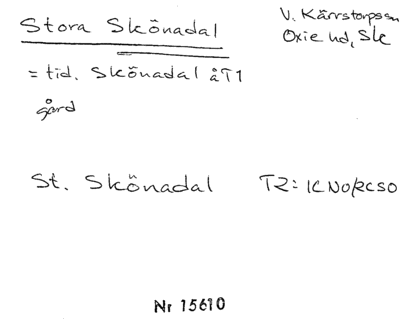 Stora Skönadal
V. Kärrstorps sn
Oxie hd, Sk
= tid. Skönadal åT1
gård
St. Skönadal T2: 1C NO/2C SO
Nr 15610